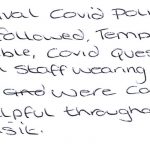 ival Covid Poli
followed, Temp
ble, Covid Ques
n staff wearing
and were co
elpful througho
sik.